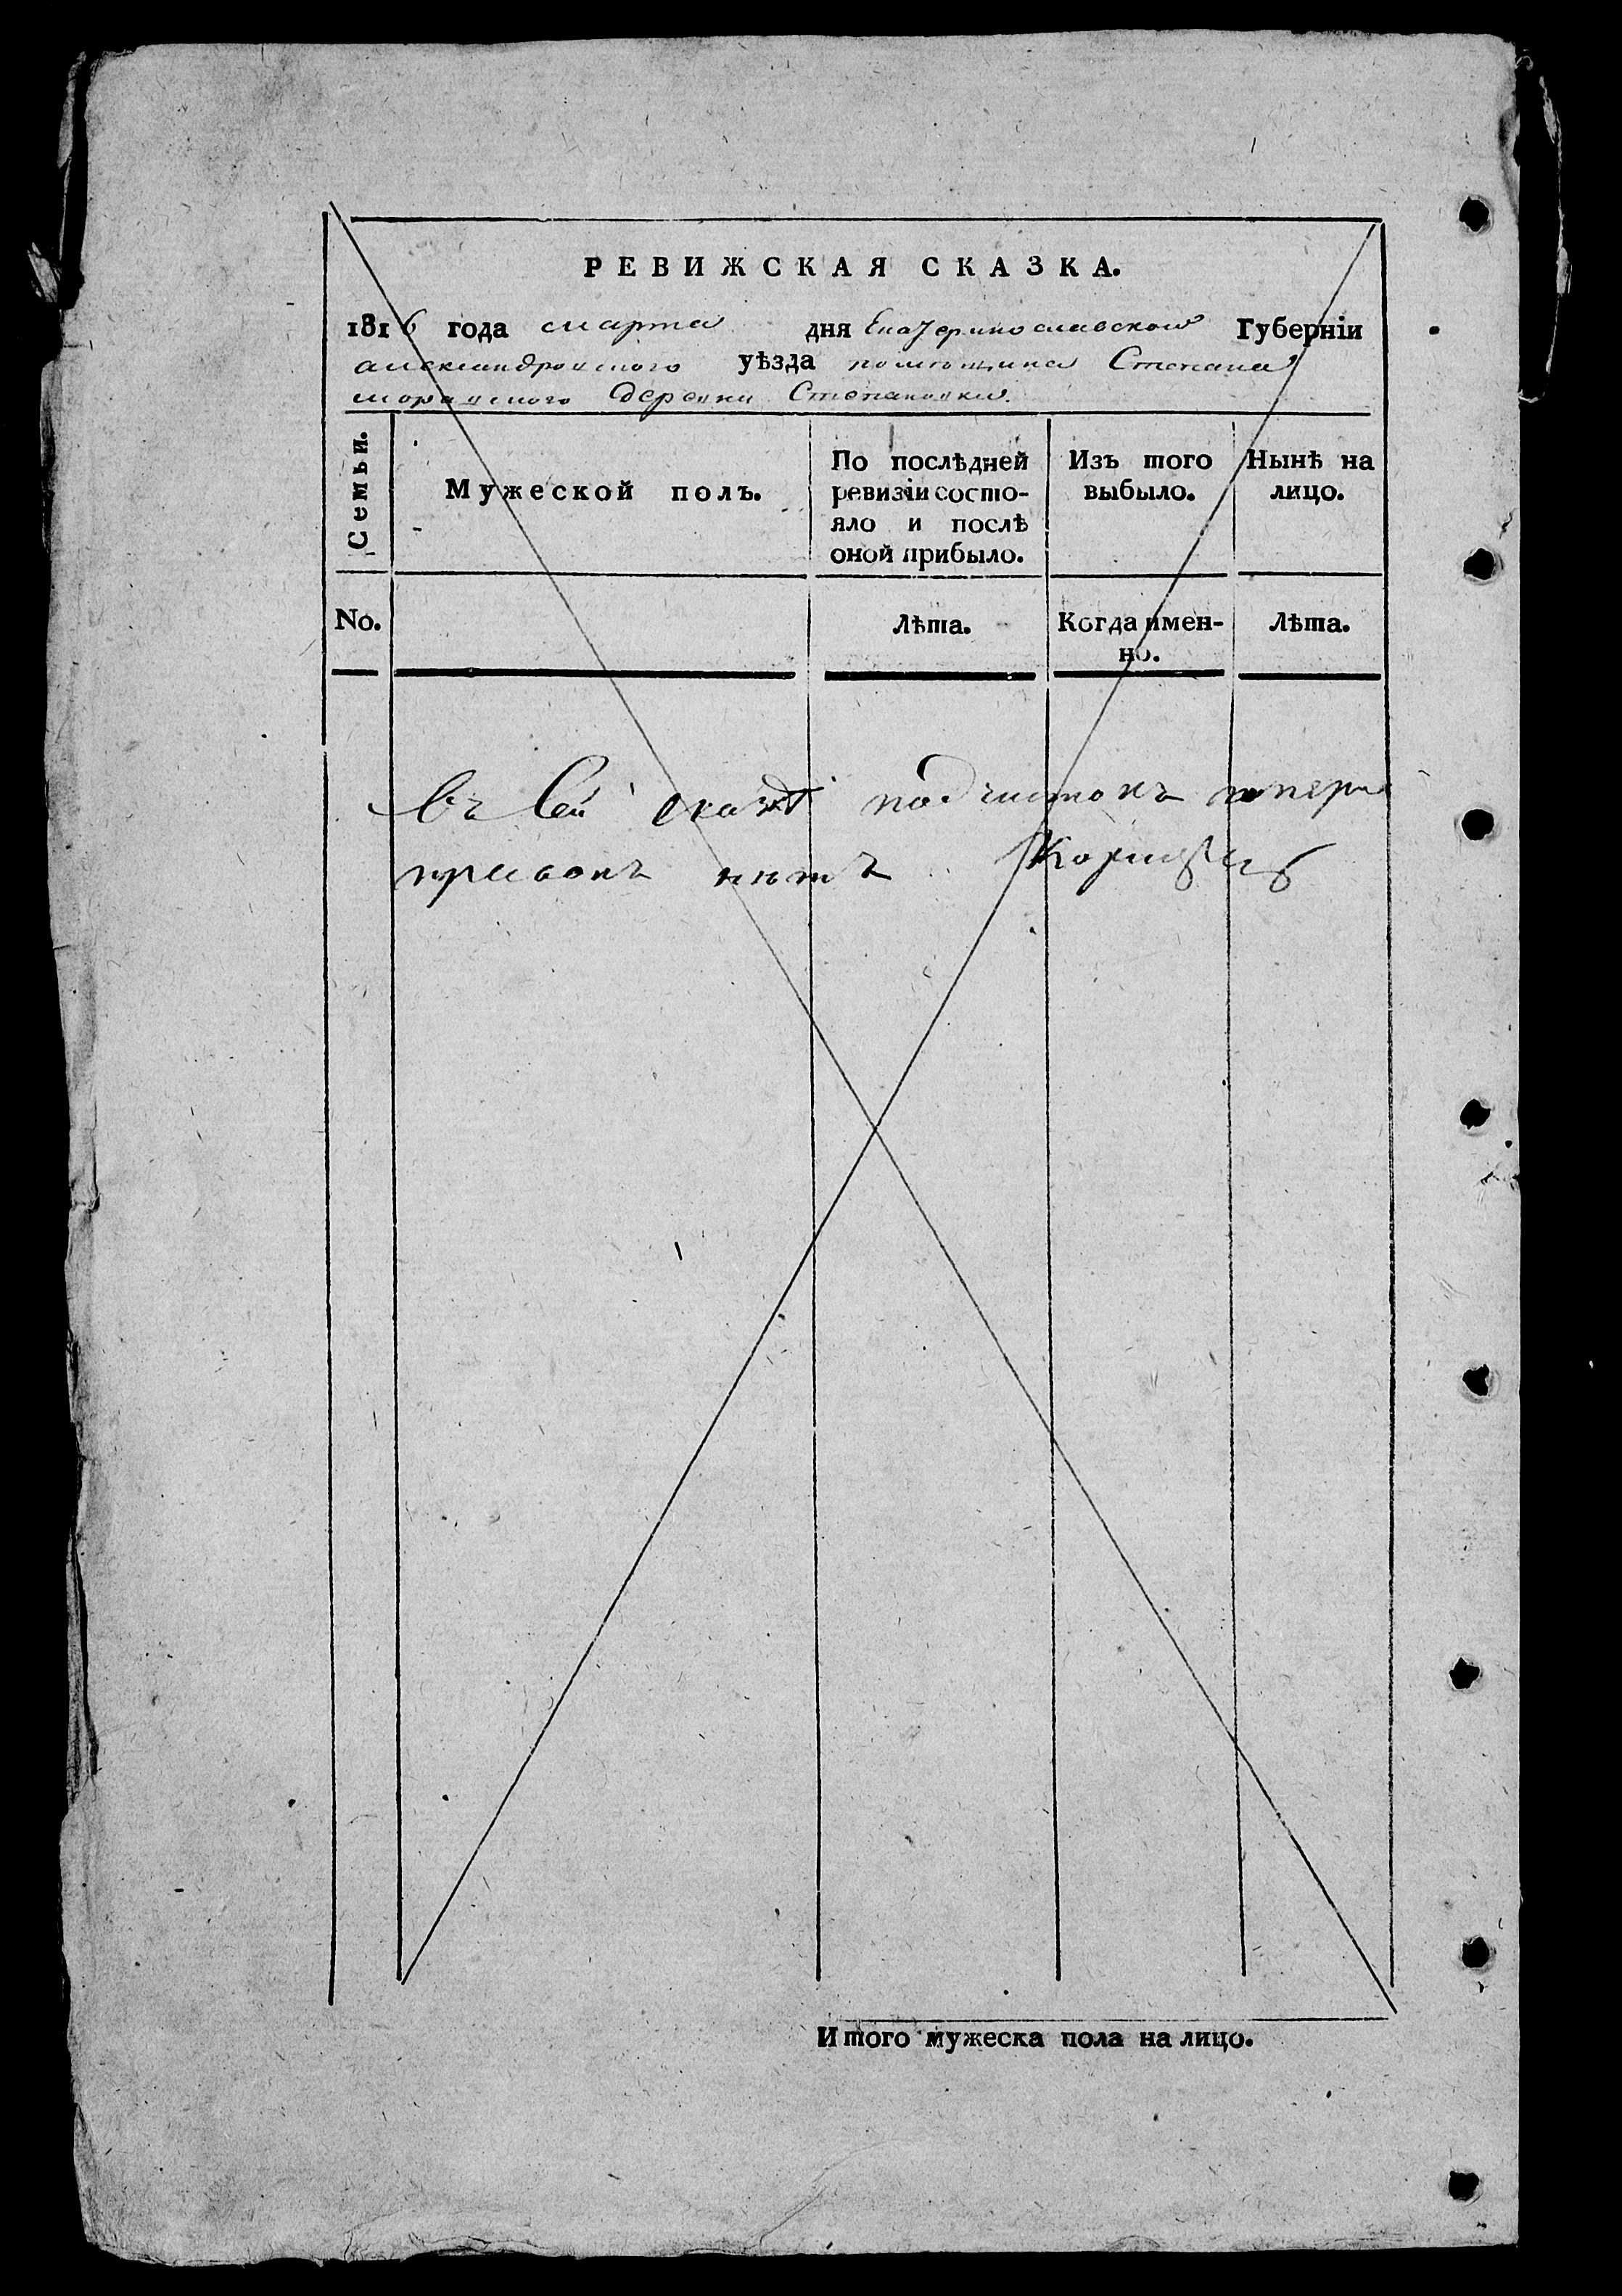 РЕВИЖСКАЯ СКАЗКА.
1816 года марта дня Екатеринославской Губерніи
александровского уѣзда помѣщика Степана
деревни Степановки.
Семьи.
Мужеской полъ.
По послѣдней
ревизіи состо-
яло и послѣ
оной прибыло.
Изъ того
выбыло.
Нынѣ на
лицо.
No.
Лѣта.
Когда имен-
но.
Лѣта.
въ Сей сказкѣ подчистокъ и пере
правокъ нетъ
Итого мужеска пола на лицо.